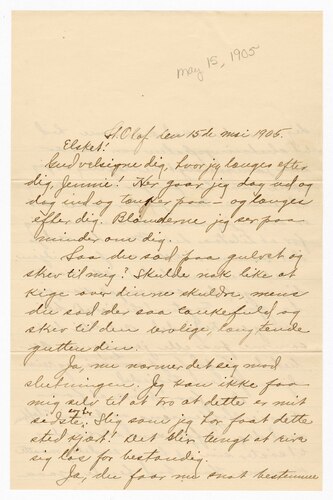 May 15, 1905
St. Olaf den 15de mai 1905.
Elsket!
Gud velsigne dig, hvor jeg længes efter
dig, Jennie! Her gaar jeg dag ud og
dag ind og tænker paa – og længes
efter dig. Blomderne jeg ser paa
minder om dig.
Saa du sad paa gulvet og
skrev til mig! Skulde nok like at
kige over dinne skuldre, mens
du sad der saa tankefuld og
skrev til den urolige, længtende
gutten din.
Ja, nu nærmer det sig mod
slutningen. Jeg kan ikke faa
mig selv til at tro at dette er mit
sidste, slig som jeg har faat dette
sted kjært! Det blir tungt at rive
sig løs for bestandig.
Ja, du faar nu snat bestemme